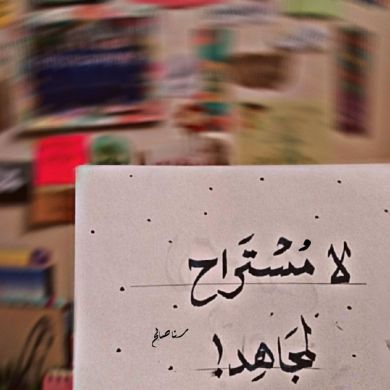 لا مُسْتَراح
لمجَاهِد!
سنا صالح